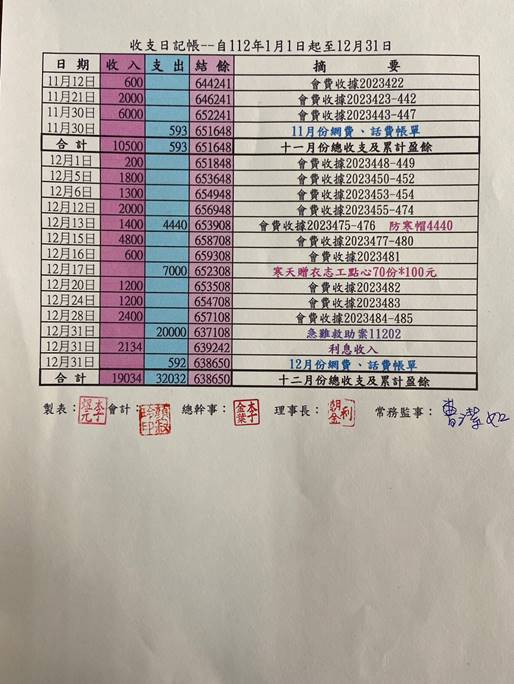 收支日記帳--自112年1月1日起至12月31日
日 期 收 入 支 出 結 餘 摘 要
11月12日 600 644241 會費收據2023422
11月21日 2000 646241 會費收據2023423-442
11月30日 6000 652241 會費收據2023443-447
11月30日 593 651648 11月份網費、話費帳單
合 計 10500 593 651648 十一月份總收支及累計盈餘
12月1日 200 651848 會費收據2023448-449
12月5日 1800 653648 會費收據2023450-452
12月6日 1300 654948 會費收據2023453-454
12月12日 2000 656948 會費收據2023455-474
12月13日 1400 4440 653908 會費收據2023475-476 防寒帽4440
12月15日 4800 658708 會費收據2023477-480
12月16日 600 659308 會費收據2023481
12月17日 7000 652308 寒天贈衣志工點心70份*100元
12月20日 1200 653508 會費收據2023482
12月24日 1200 654708 會費收據2023483
12月28日 2400 657108 會費收據2023484-485
12月31日 20000 637108 急難救助案11202
12月31日 2134 639242 利息收入
12月31日 592 638650 12月份網費、話費帳單
合 計 19034 32032 638650 十二月份總收支及累計盈餘
製表： 會計： 總幹事： 理事長： 常務監事：